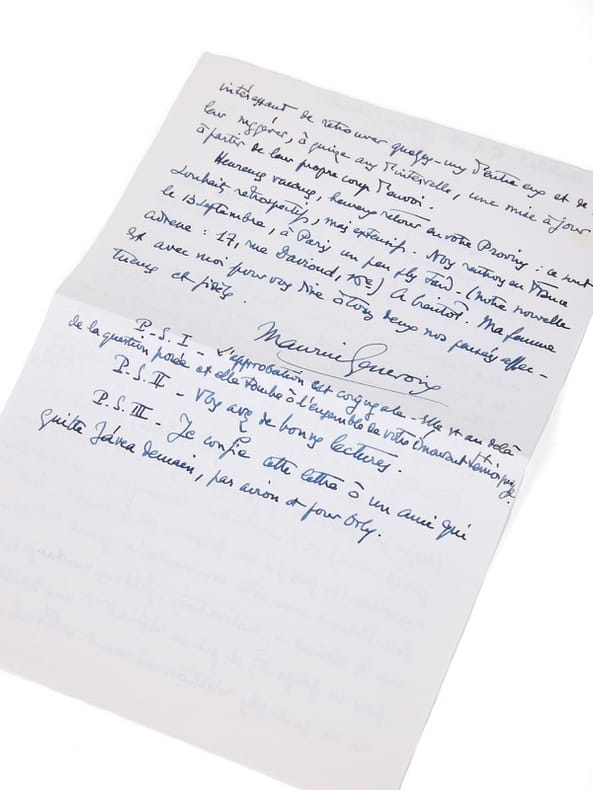 intéressant de retrouver quelques-uns d'entre eux et de
leur suggérer, à quinze ans d'intervalle, une mise à jour
à partir de leur propre corps d'envoi.
Heureuses vacances, heureux retour en votre Provins : ce sont
souhaits rétrospectifs, mais extensifs. Nous rentrons en France
le 13 septembre, à Paris un peu plus tard. (notre nouvelle
adresse : 17, rue Davioud, 16e) A bientôt. Ma femme
est avec moi pour vous dire à tous deux nos pensées affec-
tueuses et fidèles.
Maurice
P.S. I - L'approbation est conjugale. Elle va au delà
de la question posée et elle touche à l'ensemble de votre émouvant
P.S. II - Vous avez de bonnes lectures.
P.S. III - Je confie cette lettre à un ami qui
quitte Jávea demain, par avion et pour Orly.